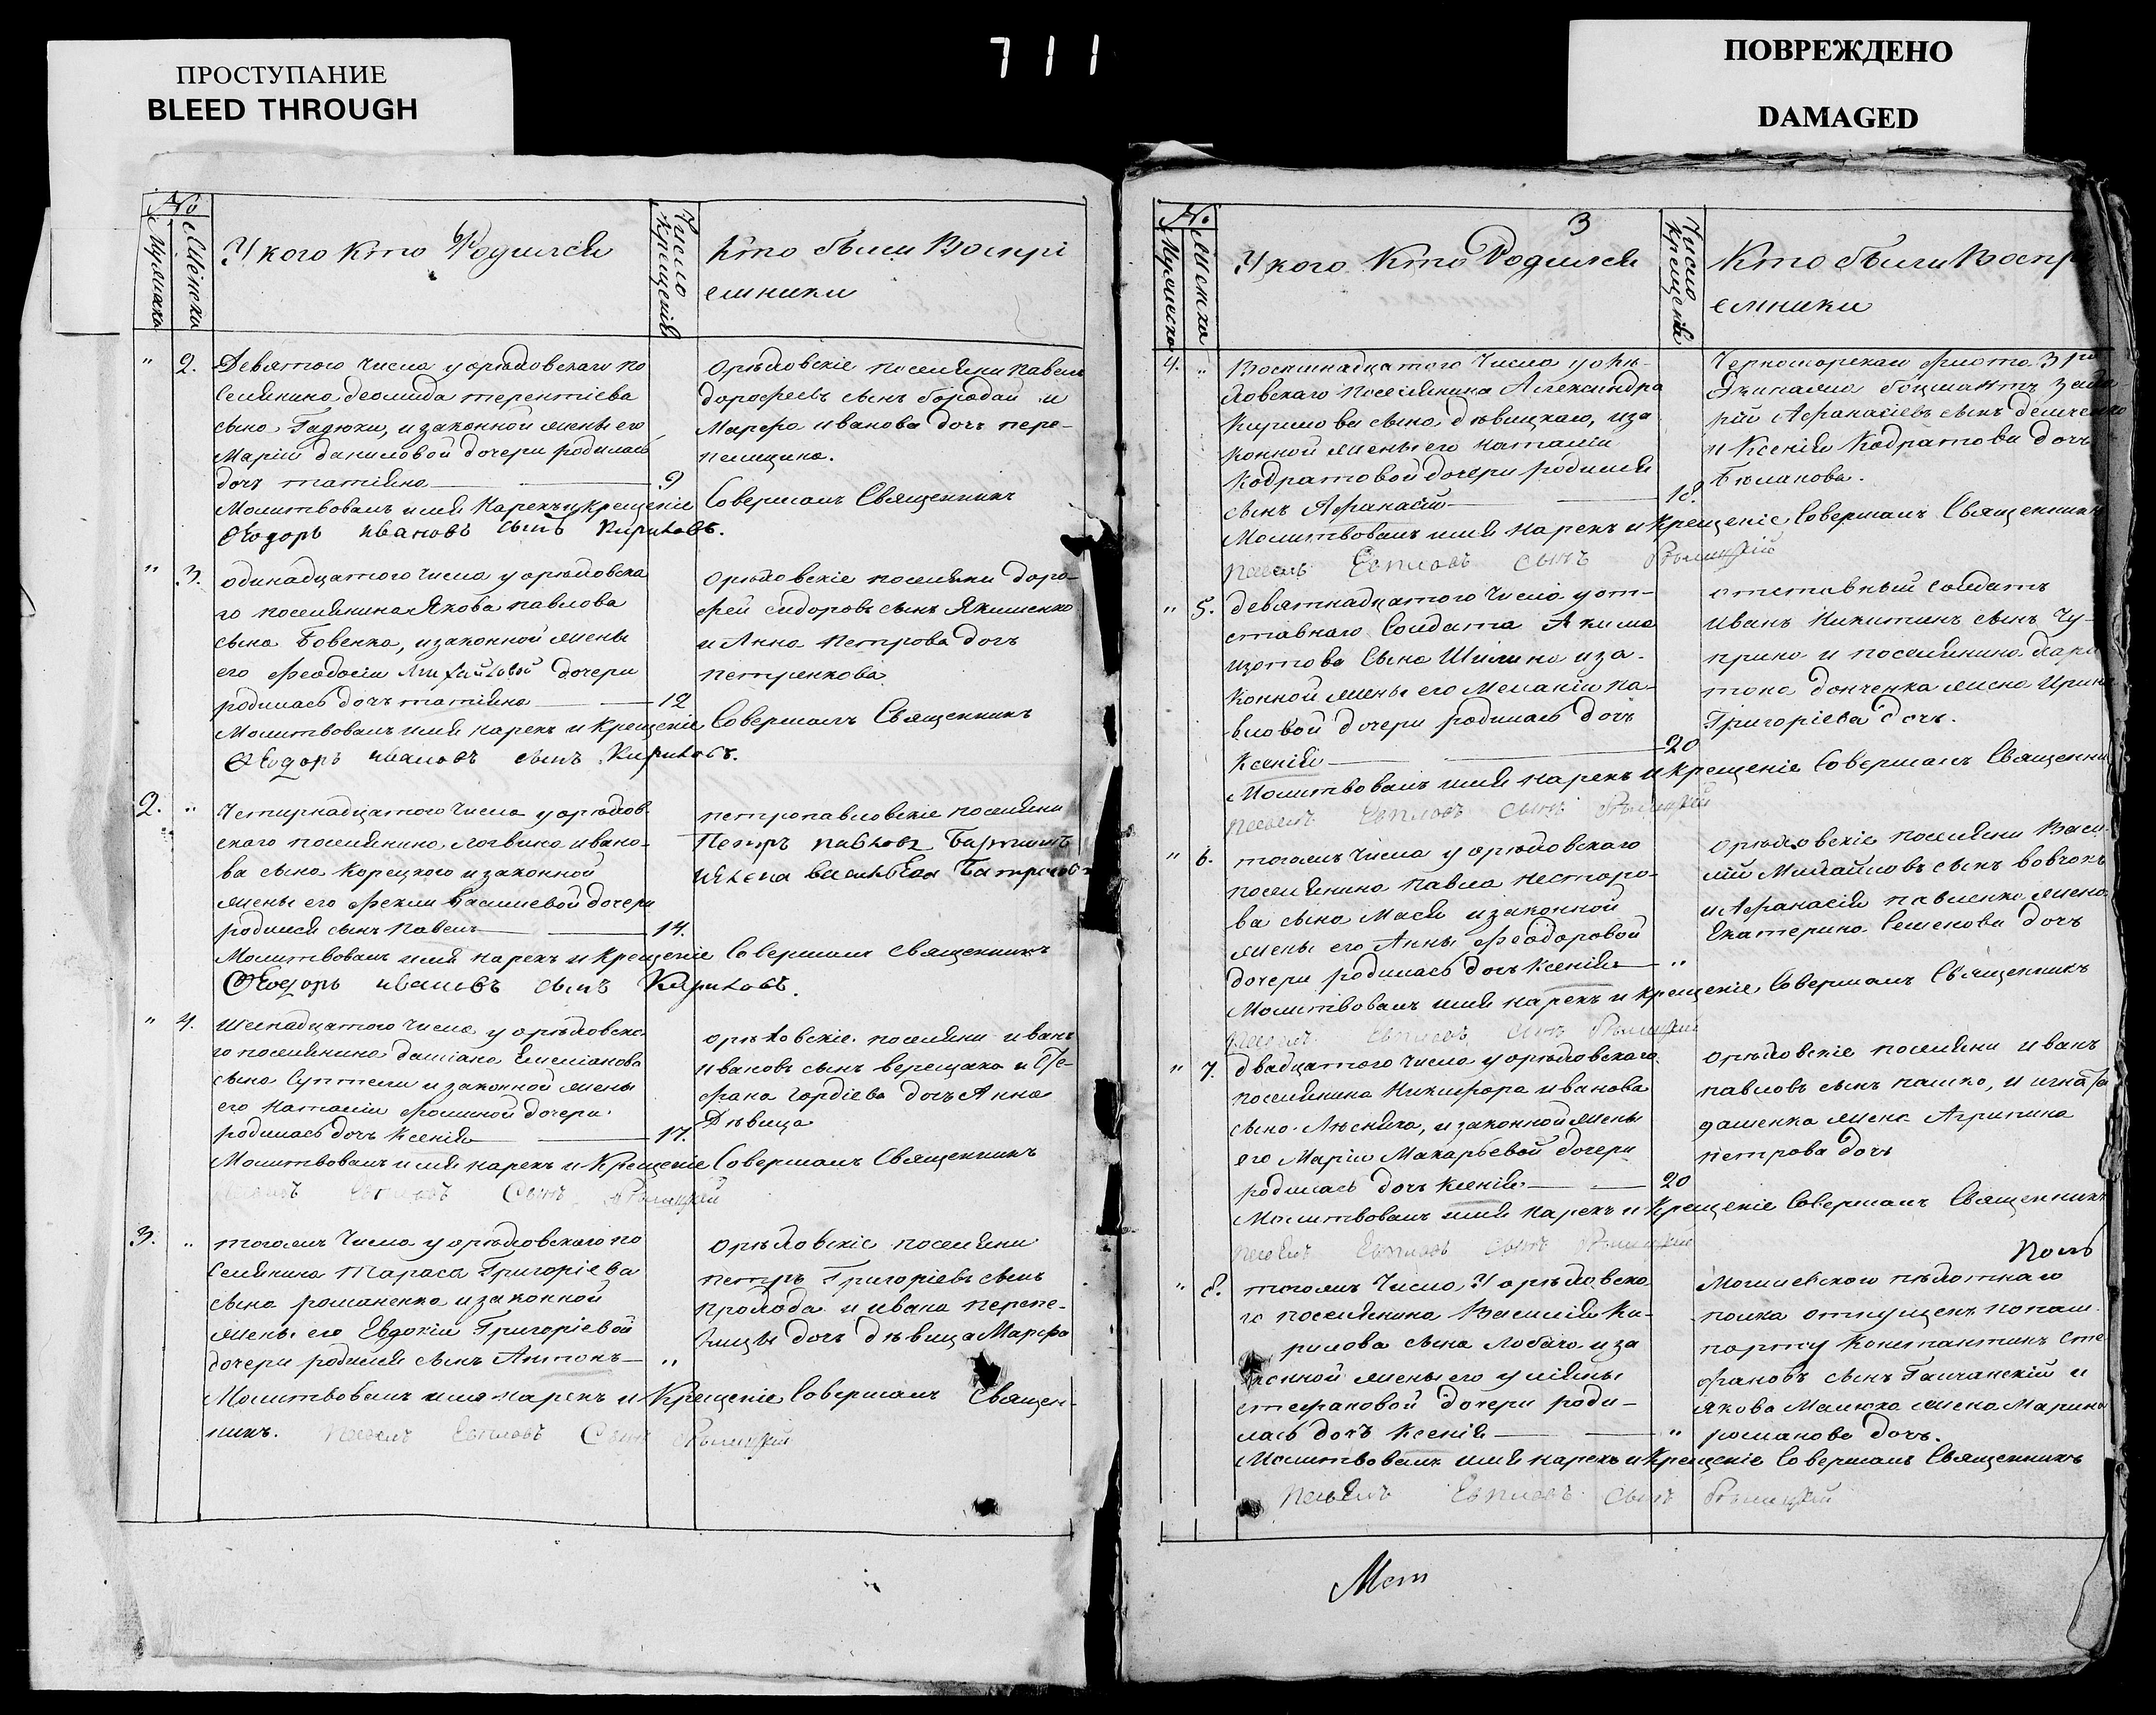 ПРОСТУПАНИЕ
BLEED THROUGH
711
ПОВРЕЖДЕНО
DAMAGED
№
Мужеска
Женска
У кого кто Родился
Число крещенія
Кто были Воспрі
емники
" 2. Девятого числа у орѣховскаго по
селянина деомида терентіева
сына Гадюки, и законной жены его
Маріи даниловой дочери родилась
дочь татіяна 9
Молитвовалъ имя Нарекъ и крещеніе Совершалъ Священникъ
Ѳеодоръ ивановъ сынъ Кириловъ.
Орѣховскіе поселяни павелъ
дорофеевъ сынъ Бородай и
Марфа иванова дочь пере-
пелицына.
" 3. одинадцатого числа у орѣховска
го поселянина Якова павлова
сына Бовенка, и законной жены
его феодосіи Михайловой дочери
родилась дочь татіяна 12
Молитвовалъ имя нарекъ и крещеніе Совершалъ Священникъ
Ѳеодоръ ивановъ сынъ Кириловъ.
Орѣховскіе поселяни доро-
фей сидоровъ сынъ Якименко
и Анна Петрова дочь
петренкова
2. " Четырнадцатого числа у орѣхов
скаго поселянина логвина ивано-
ва сына Корецкого и законной
жены его феклы Василиевой дочери
родился сынъ Павелъ 14.
Молитвовалъ имя нарекъ и крещеніе Совершалъ священникъ
Ѳеодоръ ивановъ сынъ Кириловъ.
петропавловскіе поселяни
Петръ павловъ
" 4. Шеснадцатого числа у орѣховска
го поселянина даміана Емеліанова
сына Суптели и законной жены
его Наталіи фоминой дочери
родилась дочь Ксенія 17.
Молитвовалъ имя нарекъ и Крещеніе Совершалъ Священникъ
сынъ
орѣховскіе поселяни иванъ
ивановъ сынъ верещака и Сте-
фана Гордіева дочь Анна
Дѣвица
3. " тогожъ Числа у орѣховскаго по
Селянина Тараса Григоріева
сына романенка и законной
жены его Евдокіи Григоріевой
дочери родился сынъ Антонъ "
Молитвовалъ имя нарекъ и Крещеніе Совершалъ Священ-
никъ. Павелъ Евпловъ Сынъ
Орѣховскіе поселяни
петръ Григоріевъ сынъ
прохода и ивана перепе-
лицы дочь дѣвица Марфа
3
№.
Мужеска
Женска
У кого Кто Родился
Число крещенія
Кто были Воспр
емники
4. " Восемнадцатого Числа у орѣ-
ховскаго поселянина Александра
Кирилова сына дѣвицкаго, и за
конной жены его наталіи
Кодратовой дочери родился
сынъ Афанасій 18.
Молитвовалъ имя нарекъ и Крещеніе Совершалъ Священникъ
Павелъ Евпловъ сынъ
Черноморскаго флота 31го
Экипажа боцманъ
Афанасіевъ сынъ
и Ксенія Кодратова дочь
" 5. девятнадцатого числа у от-
ставнаго Солдата Акима
изотова сына Шилина и за-
конной жены его Меланіи па-
вловой дочери родилась дочь
Ксенія 20
Молитвовалъ имя нарекъ и крещеніе Совершалъ Священни
Павелъ Евпловъ сынъ
отставный солдатъ
иванъ Никитинъ сынъ Чу-
прина и поселянина
донченка жена Ирина
Григоріева дочь.
" 6. тогожъ числа у орѣховскаго
поселянина павла несторо-
ва сына Мася и законной
жены его Анны Феодоровой
дочери родилась дочь Ксенія "
Молитвовалъ имя нарекъ и крещеніе Совершалъ Священникъ
Павелъ Евпловъ сынъ
орѣховскіе поселяни Васи-
лій Михайловъ сынъ вовчокъ
и Афанасія павленка жена
Екатерина Семенова дочь
" 7. двадцатого числа у орѣховскаго
поселянина Никифора иванова
сына Лѣсняка, и законной жены
его Маріи Макарьевой дочери
родилась дочь Ксенія 20
Молитвовалъ имя нарекъ и Крещеніе Совершалъ Священникъ
Павелъ Евпловъ сынъ
орѣховскіе поселяни иванъ
павловъ сынъ пашко, и игната
дашенка жена Агрипина
петрова дочь
" 8. тогожъ Числа У орѣховска
го поселянина Василія Ки-
рилова сына лобача и за
конной жены его уліяны
стефановой дочери роди-
лась дочь Ксенія "
Молитвовалъ имя нарекъ и Крещеніе Совершалъ Священникъ
Павелъ Евпловъ сынъ
пѣхотнаго
полка отпущен по паш
порту Константинъ сте
фановъ сынъ Галчанскій и
якова Малюка жена Марина
романова дочь.
Мст